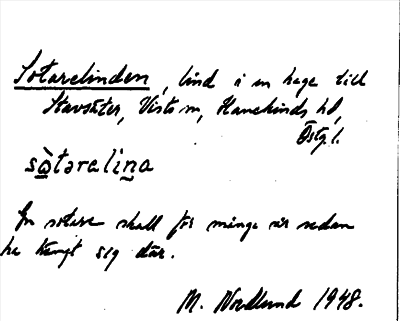 Sotarelinden, lind i en hage till
Stavsäter, Vists sn, Hanekinds hd,
Östg l.
sò̱tərali̱n̠a
En sotare skall för många år sedan
ha hängt sig där.
M. Nordlund 1948.